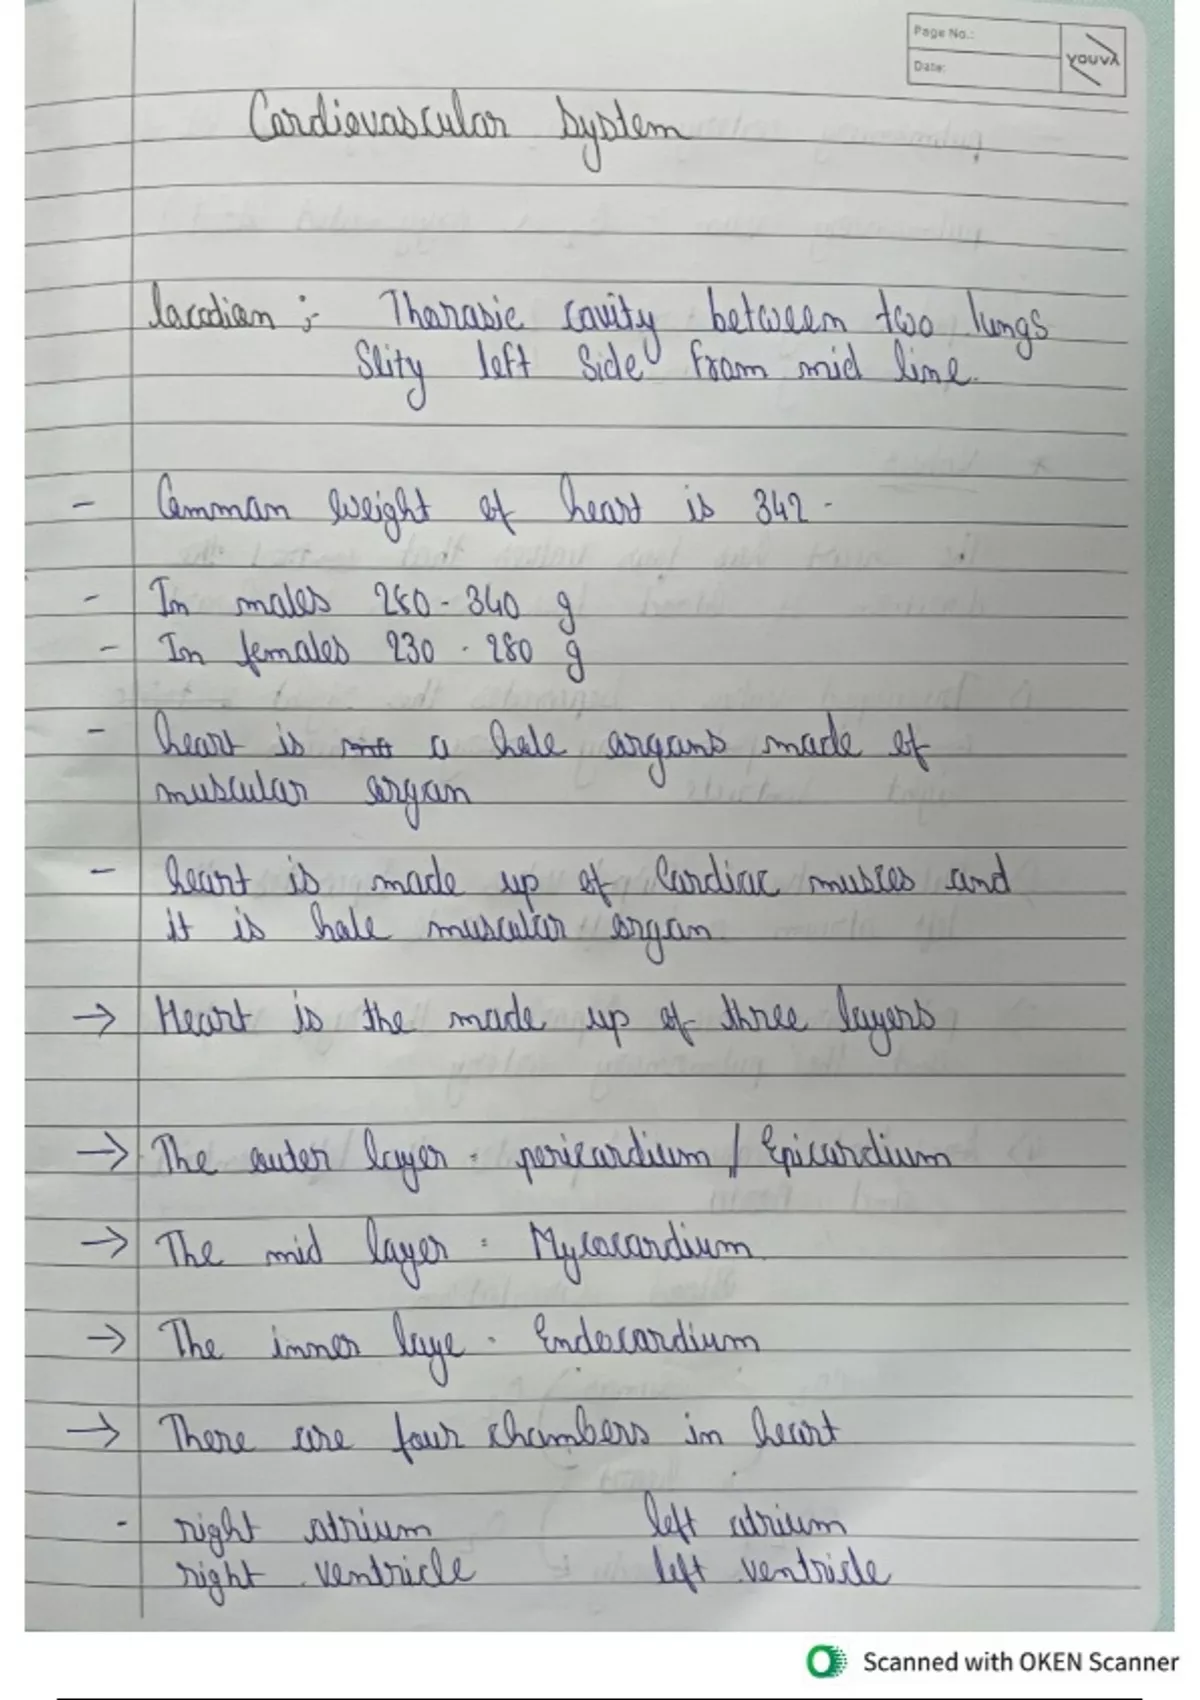 Page No.:
Date:
YOUVA
Cardiovascular System
lacodian :- Tharasic cavity between two lungs
Slity left Side from mid line.
- Comman weight of heart is 342 -
- In males 280 - 340 g
- In females 230 - 280 g
- heart is a hale organs made of
muscular organ
- heart is made up of Cardiac muscles and
it is hale muscular organ.
→ Heart is the made up of three layers
→ The outer layer - pericardium / Epicardium
→ The mid layer = Myocardium.
→ The inner laye - Endocardium
→ There are four chambers in heart
- right atrium left atrium
right ventricle left ventricle
Scanned with OKEN Scanner